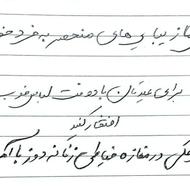 از زیبایی های منحصر به فرد خو
برای عیدتان با دوخت لباس خوب
افتخار کنید
در مغازه خیاطی زنانه دوز با